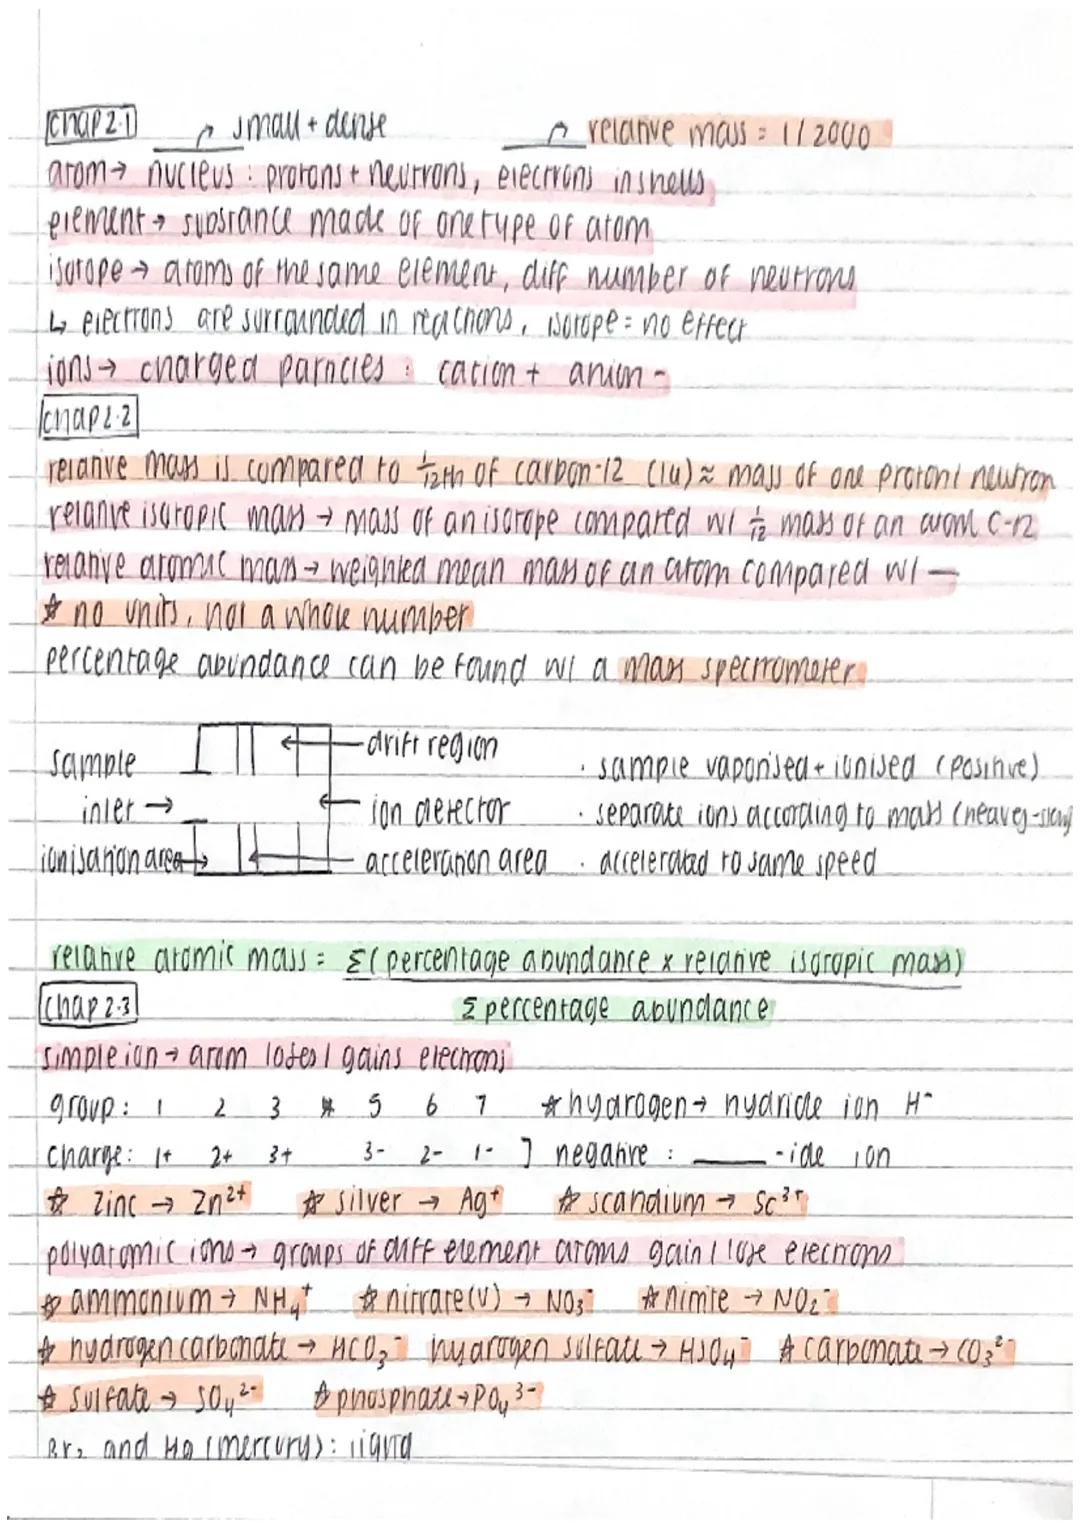 chap 2.1
small + dense
relative mass = 1/2000
atom → nucleus : protons + neutrons, electrons in shells
element → substance made of one type of atom
isotope → atoms of the same element, diff number of neutrons
↳ electrons are surrounded in reactions, isotope = no effect
ions → charged particles : cation + anion -
chap 2.2
relative mass is compared to 1/12th of carbon-12 (1u) ≈ mass of one proton/neutron
relative isotopic mass → mass of an isotope compared w/ 1/12 mass of an atom C-12
relative atomic mass → weighted mean mass of an atom compared w/ —
☆ no units, not a whole number
percentage abundance can be found w/ a mass spectrometer
sample
inlet →
ionisation area
drift region
ion detector
acceleration area
· sample vaporised + ionised (positive)
· separate ions according to mass (heavey-slow)
· accelerated to same speed
relative atomic mass = Σ(percentage abundance x relative isotopic mass)
Σ percentage abundance
chap 2.3
simple ion → atom loses/gains electrons
group: 1 2 3 ☆ 5 6 7 ☆ hydrogen → hydride ion H⁻
charge: 1+ 2+ 3+ 3- 2- 1- ] negative : ___-ide ion
☆ zinc → Zn²⁺ ☆ silver → Ag⁺ ☆ scandium → Sc³⁺
polyatomic ions → groups of diff element atoms gain/lose electrons
☆ ammonium → NH₄⁺ ☆ nitrate(v) → NO₃⁻ ☆ nitrite → NO₂⁻
☆ hydrogen carbonate → HCO₃⁻ hydrogen sulfate → HSO₄⁻ ☆ carbonate → CO₃²⁻
☆ sulfate → SO₄²⁻ ☆ phosphate → PO₄³⁻
Br₂ and Hg (mercury): liquid